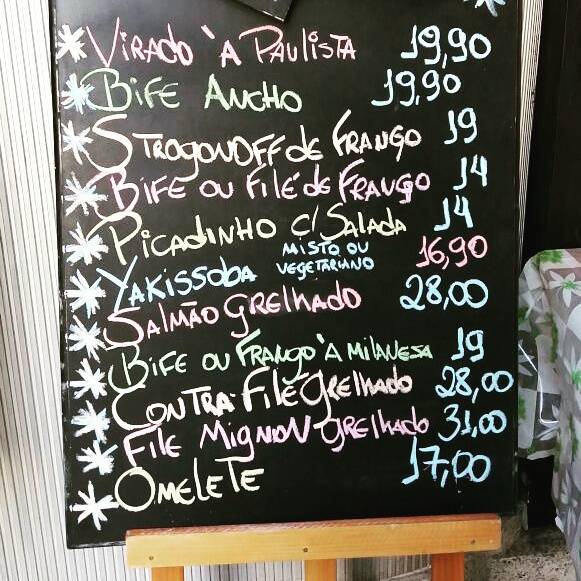 VIRADO `A PAULISTA 19,90
BIFE ANCHO 19,90
STROGONOFF de FRANGO 19
BIFE OU FILÉ de FRANGO 14
PICADINHO C/ SALADA 14
YAKISSOBA MISTO OU VEGETARIANO 16,90
SALMÃO GRELHADO 28,00
BIFE OU FRANGO `A MILANESA 19
CONTRA-FILÉ GRELHADO 28,00
FILE MIGNON GRELHADO 31,00
OMELETE 17,00